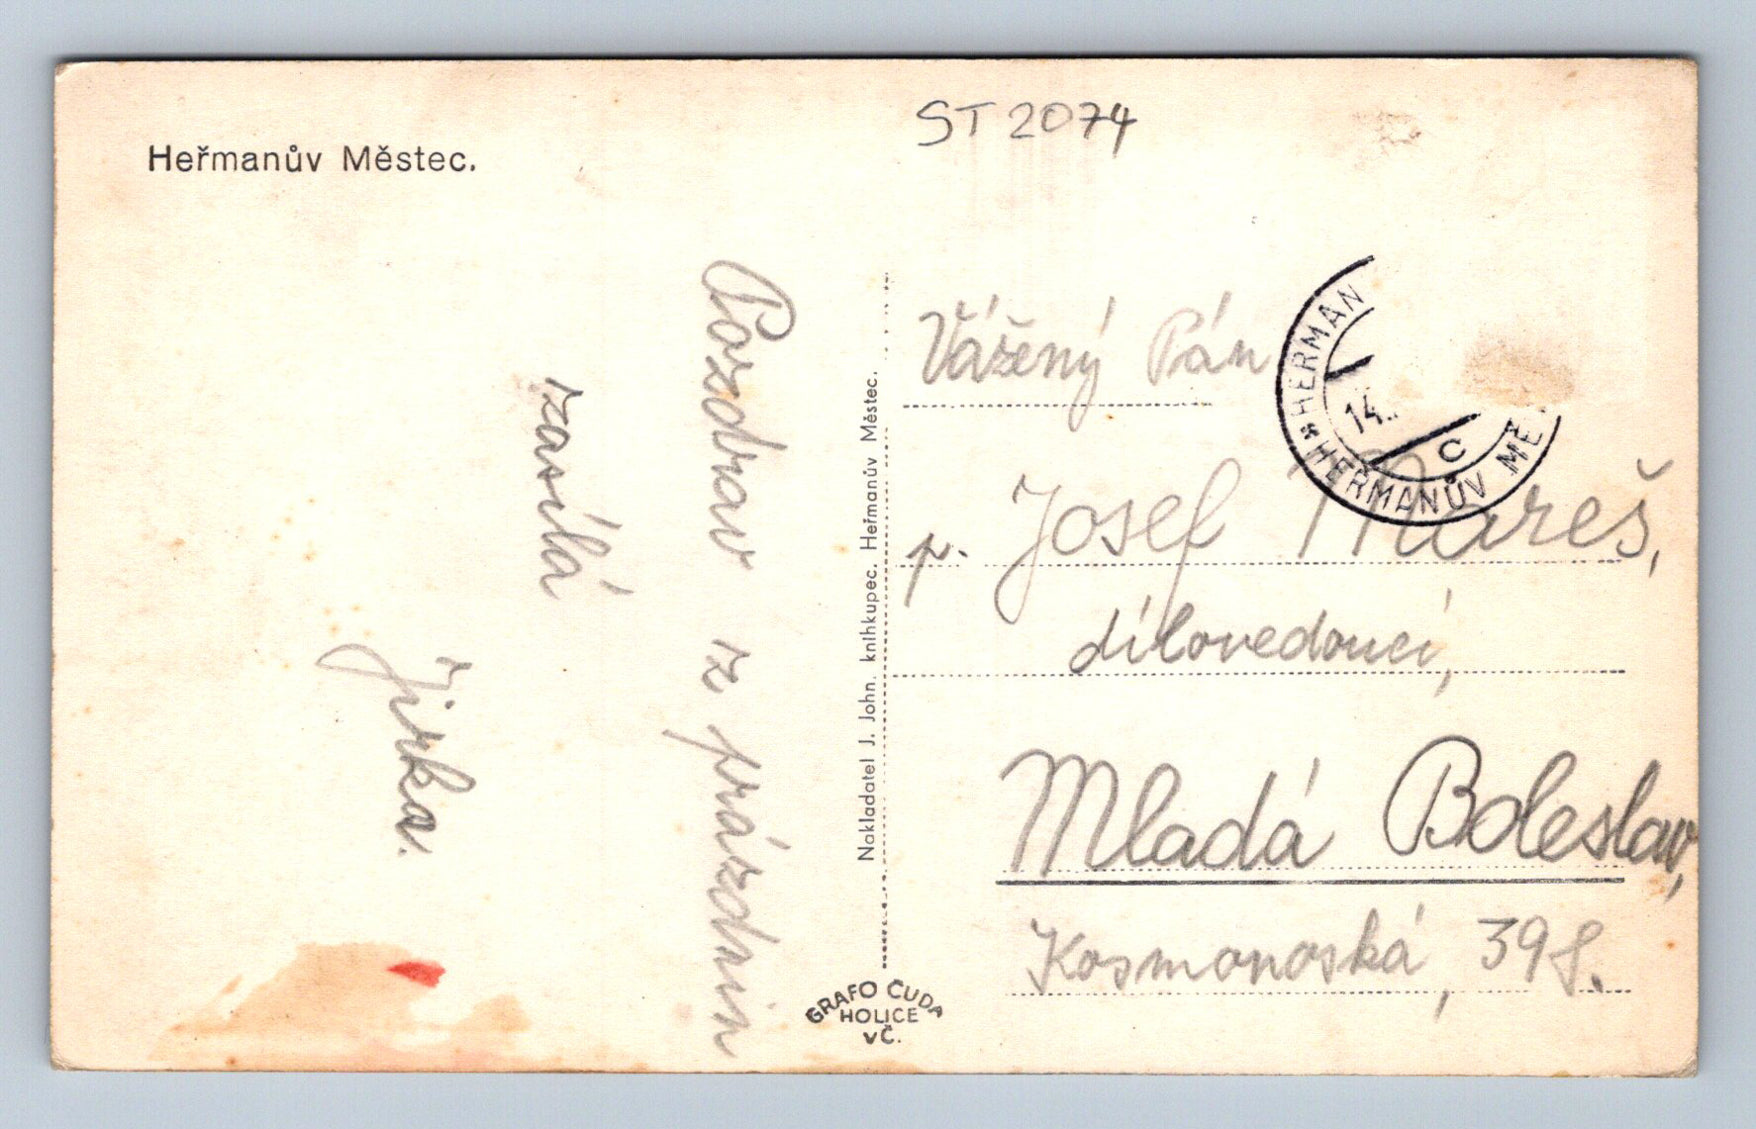 Heřmanův Městec.
ST 2074
Pozdrav z prázdnin
zasílá
Jirka.
Nakladatel J. John, knihkupec, Heřmanův Městec.
GRAFO ČUDA
HOLICE
v Č.
HEŘMAN
HEŘMANŮV MĚ
14.
C
Vážený Pán
p. Josef Mareš,
dílovedoucí,
Mladá Boleslav,
Kosmonoská, 398.